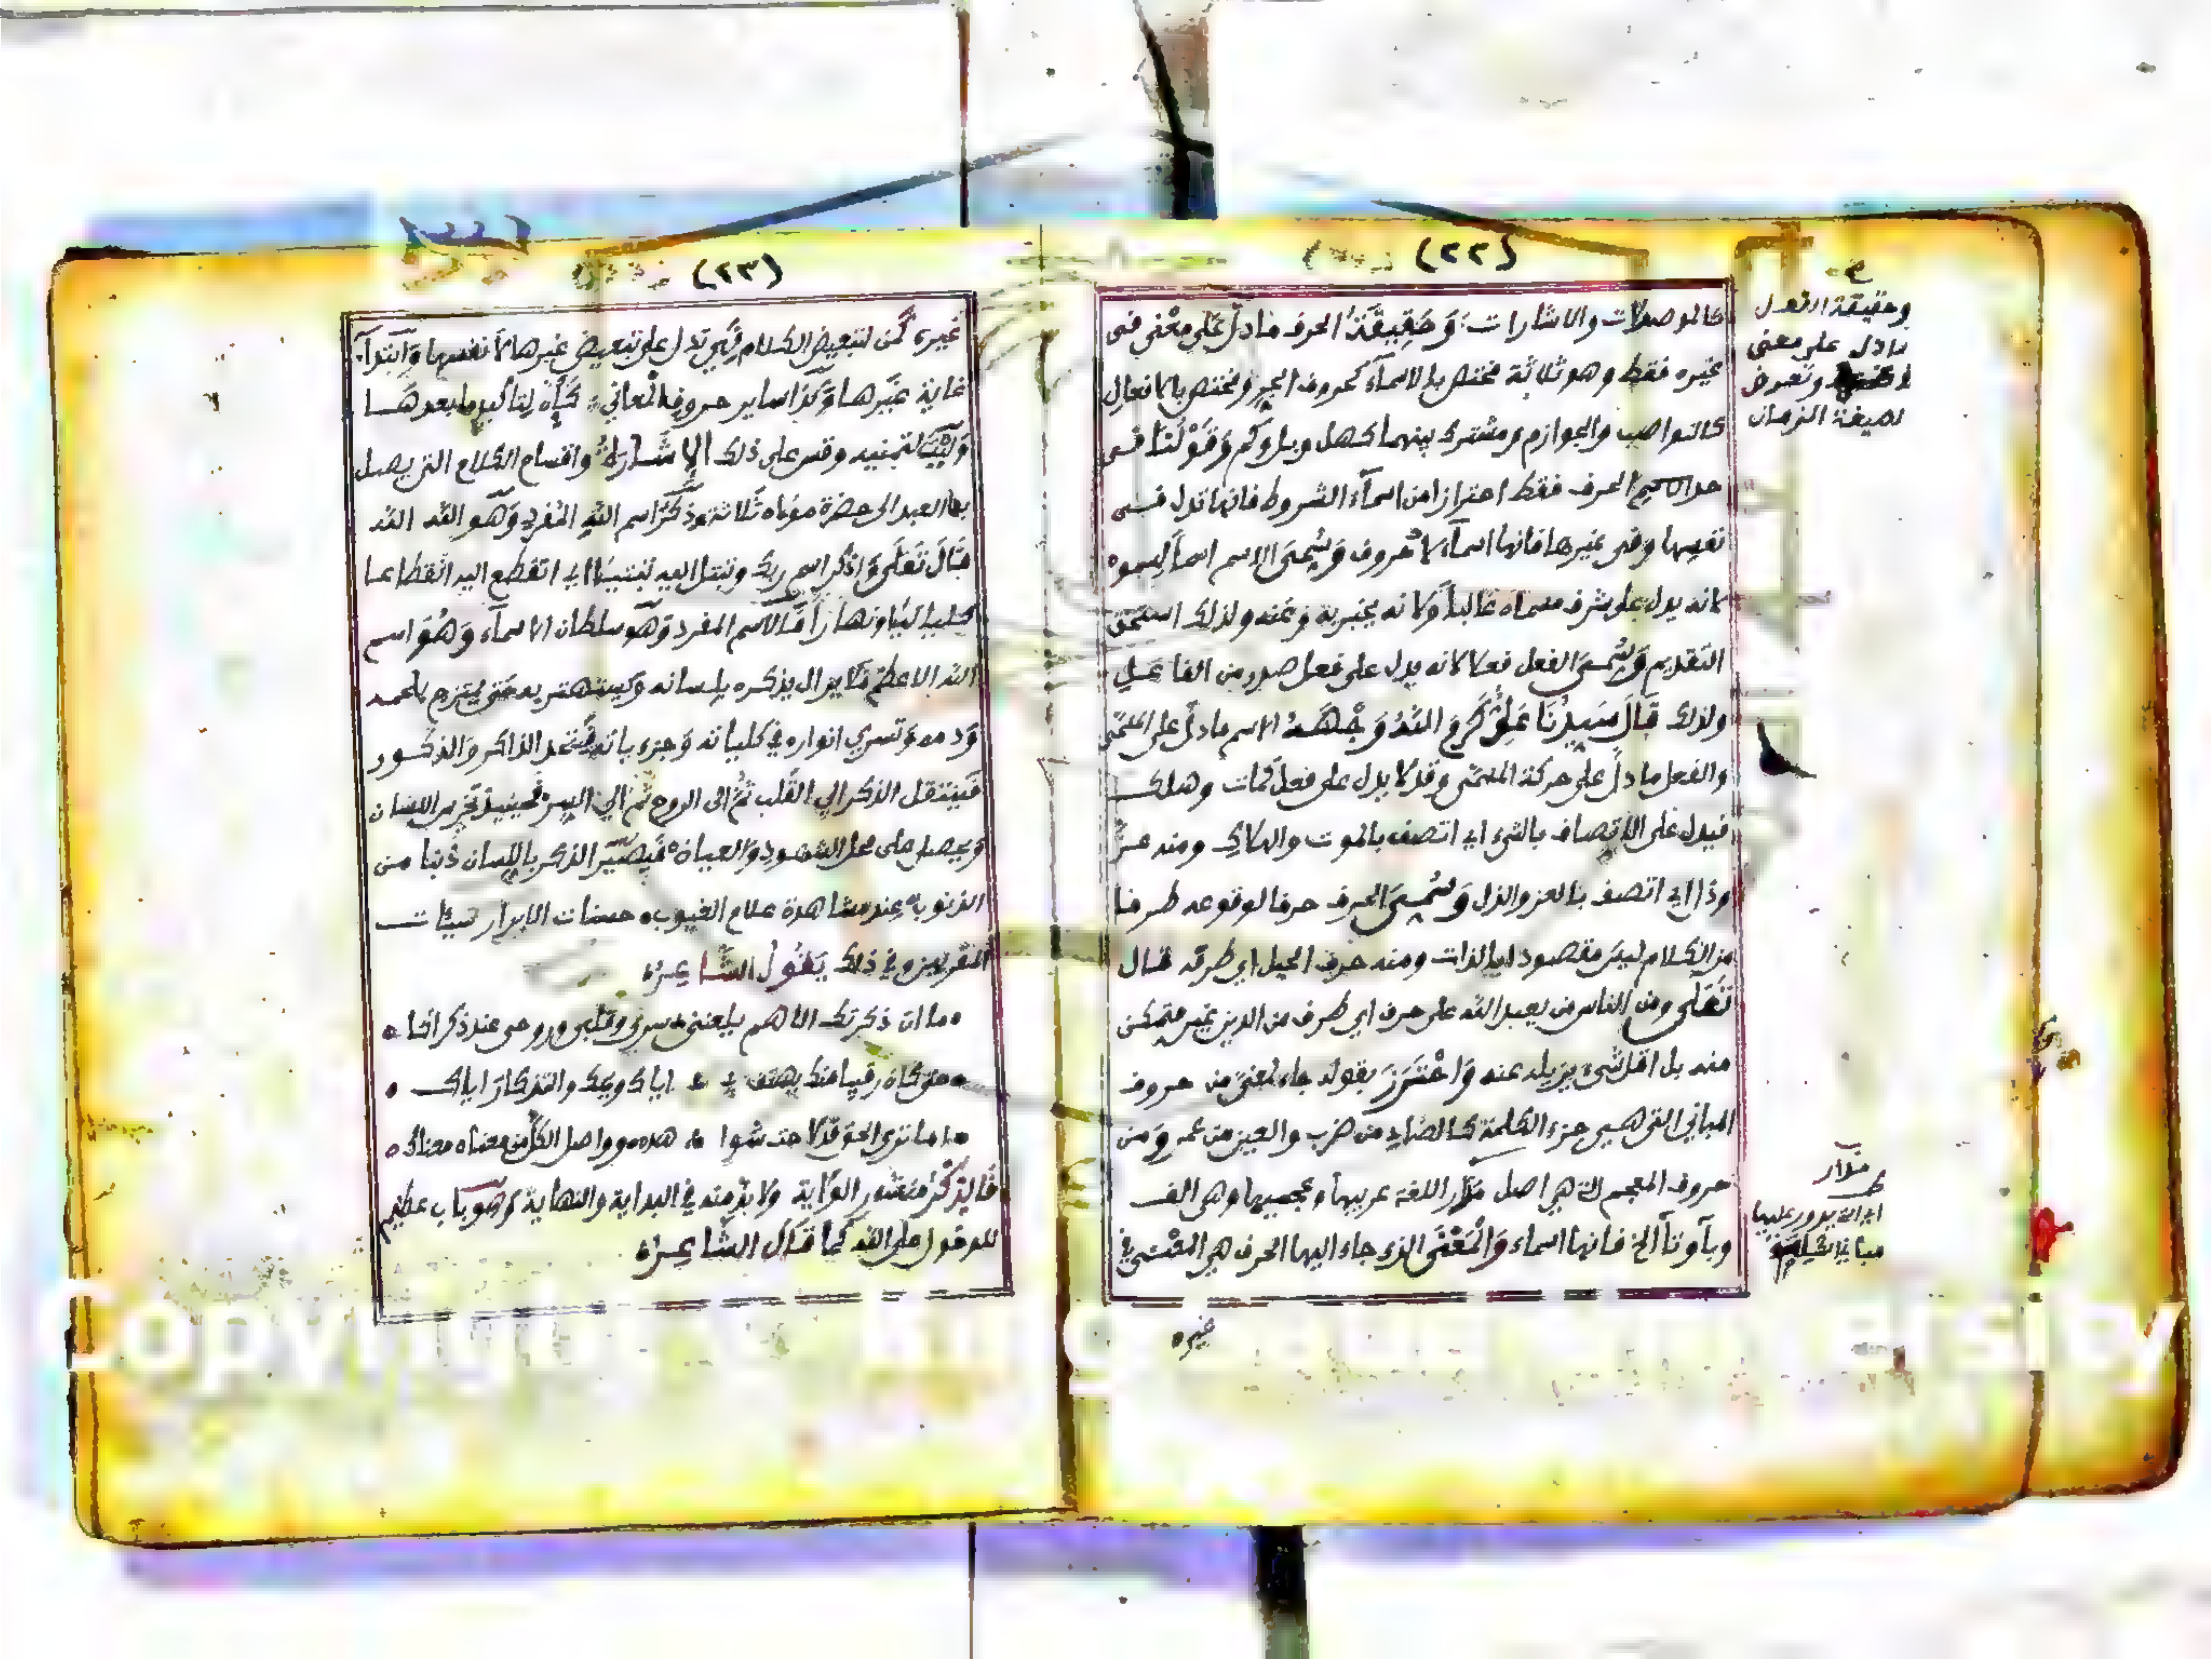 (٢٢)
كالموصولات والاشارات وَحَقِيقَةُ الحرف مادلّ عَلى معْنى فى
غيره فقط وهو ثلاثة مختص بالاسمآء كحروف الجر ومختص بالافعال
كالنواصب والجوازم ومشترك بينهما كهل وبل وكم وَقَوْلُنَا فى
حد الحرف فقط احترازا من اسمآء الشروط فانها تدل فى
نفسها وفى غيرها فانها اسمآء لا حروف وَسُمِّىَ الاسم اسما لسموه
لانه يدل على شرف مسماه غالبا ولانه يخبر به وعنه ولذلك استحق
التقديم وَسُمِّىَ الفعل فعلا لانه يدل على فعل صدر من الفاعل
ولذلك قَالَ سَيِدُنَا عَلِىّ كَرَّمَ اللّهُ وَجْهَهُ الاسم مادلّ على المسمّى
والفعل مادلّ على حركة المسمّى وقد لا يدل على فعل كمات وهلك
فيدل على الاتصاف بالشىء اى اتصف بالموت والهلاك ومنه عزّ
وذل اى اتصف بالعز والذل وَسُمِّىَ الحرف حرفا لوقوعه طرفا
من الكلام ليس مقصودا بالذات ومنه حرف الجبل اى طرفه قال
تَعَلَى ومن الناس من يعبد اللّه على حرف اى طرف من الدين غير متمكن
منه بل اقل شىء يزيله عنه وَاحْتَرَزَ بقوله جاء لمعنى من حروف
المبانى التى هى جزء الكلمة كالضاد من ضرب والعين من عمر وَمن
حروف المعجم التى هى اصل مدار اللغة عربيها وعجميها وهى الف
وبآ وتآ الخ فانها اسماء وَالْمَعْنَى الذى جاء اليها الحرف هى المعنى فى
غيره
وحقيقة الفعل
مادل على معنى
وتعرض
لصيغة الزمان
مدار
اى التى يدور عليها
(٢٣)
غيره كمن لتبعيض الكلام فهى تدل على تبعيض غيرها لا نفسها وابتدآء
غاية غيرها وكذا ساير حروف المعانى كَأن لتأكيد ما بعدها
وَلَيْتَ لتمنيه وقس على ذلك الاِشَارَةُ واقسام الكلام التى يصل
بها العبد الى حضرة مولاه ثلاثة ذكر اسم اللّه المفرد وَهو اللّه اللّه
قَالَ تَعَلَى وَاذكر اسم ربك وتبتل اليه تبتيلا اى انقطع اليه انقطاعا
كليا ليلا ونهارا فالاسم المفرد وهو سلطان الاسمآء وَهُوَ اسم
اللّه الاعظم فلا يزال يذكره بلسانه ويستهتر به حتى يمتزج بلحمه
وَدمه وَتسرى انواره فى كلياته وَجزءياته فيتحد الذاكر والمذكور
فينتقل الذكر الى القلب ثم الى الروح ثم الى السر فحينئذ يخرس اللسان
ويحصل على محل الشهود والعيان فيصير الذكر باللسان ذنبا من
الذنوب عند مشاهدة علام الغيوب حسنات الابرار سيئات
المقربين وفى ذلك يَقُولُ الشّاعِرُ
ما ان ذكرتك الا هم يلعنني سرى وقلبى وروحى عند ذكراكا
حتى كان رقيبا منك يهتف بى اياك ويحك والتذكار اياك
اما ترى الحق قد لاحت شواهده وواصل الكل من معناه معناك
فَالذِّكْرُ منشور الولاية ولا بد منه فى البداية والنهاية وَهو باب عظيم
للدخول على اللّه كما قَالَ الشّاعِرُ